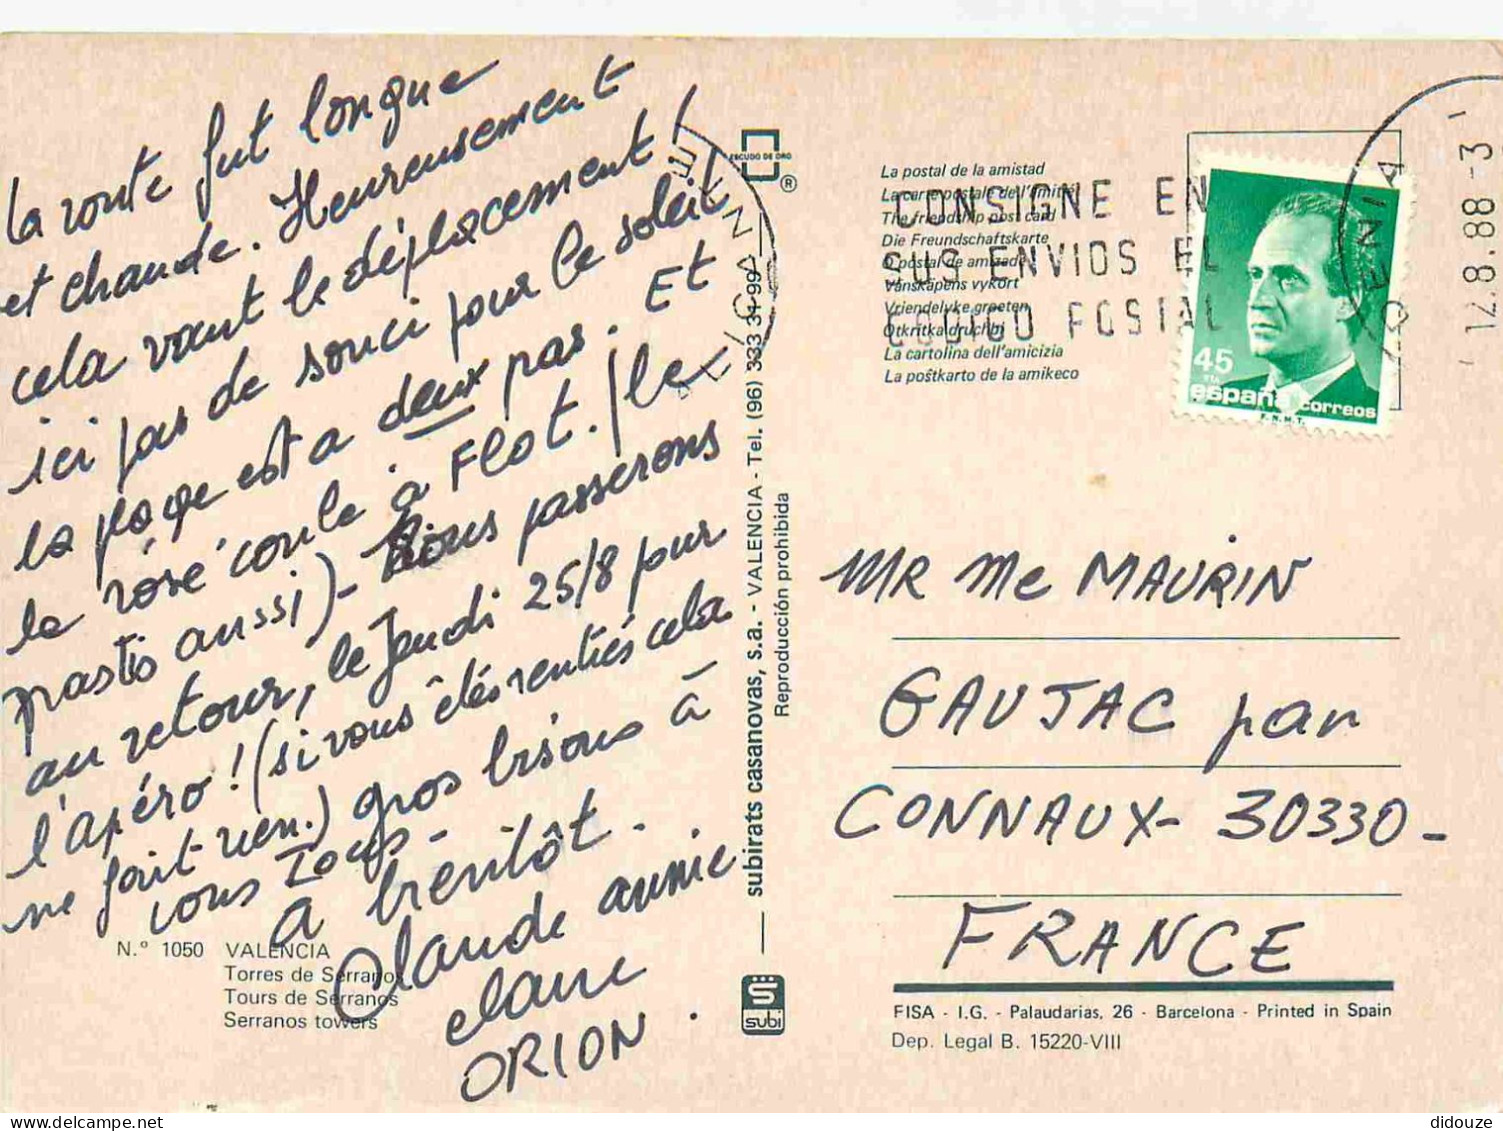 la route fut longue
et chaude. Heureusement
cela vaut le déplacement !
ici pas de souci pour le soleil
la plage est a deux pas. Et
le rosé coule à Flot. (le
pastis aussi) - Nous passerons
au retour, le Jeudi 25/8 pour
l'apéro ! (si vous êtes rentrés cela
ne fait rien.) gros bisous à
vous Tous -
A bientôt.
Claude annie
claire
ORION.
N.º 1050 VALENCIA
Torres de Serranos
Tours de Serranos
Serranos towers
ESCUDO DE ORO
®
subirats casanovas, s.a. - VALENCIA - Tel. (96) 333 34 99
Reproducción prohibida
subi
La postal de la amistad
La carte postale de l'amitié
The friendship post card
Die Freundschaftskarte
O postal de amizade
Vänskapens vykort
Vriendelyke groeten
Otkritka druchbi
La cartolina dell'amicizia
La poŝtkarto de la amikeco
CONSIGNE EN
SUS ENVIOS EL
CODIGO POSTAL
12.8.88 - 3
45
PTA
españa correos
F.N.M.T.
MR Me MAURIN
GAUJAC par
CONNAUX - 30330 -
FRANCE
FISA - I.G. - Palaudarias, 26 - Barcelona - Printed in Spain
Dep. Legal B. 15220-VIII
didouze